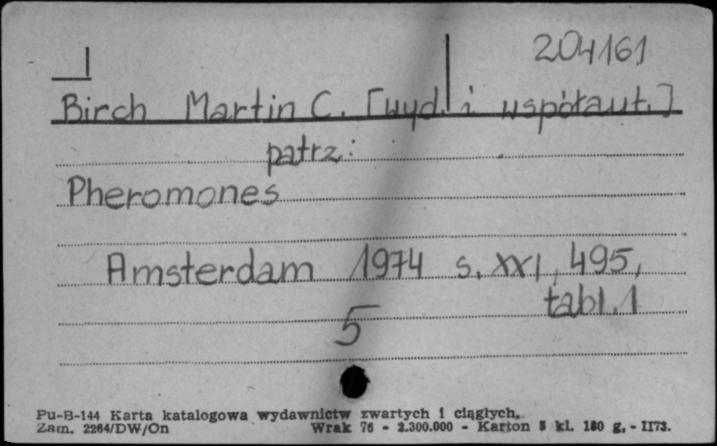 204161
Birch Martin C. [wyd. i współaut.]
patrz:
Pheromones
Amsterdam 1974 s. XXI, 495,
tabl. 1
5
Pu-B-144 Karta katalogowa wydawnictw zwartych i ciągłych.
Zam. 2264/DW/On Wrak 76 - 2.300.000 - Karton 5 kl. 180 g. - II73.